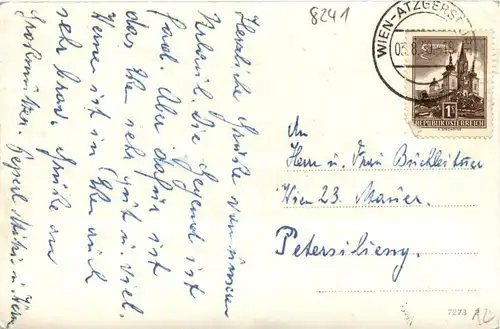 8241
WIEN-ATZGERSD
03.8.
1S
REPUBLIK ÖSTERREICH
Herzliche Grüße von unserem
Urlaub. Die Gegend ist
fad. Aber dafür ist
das Essen sehr gut u. viel.
Herne ist in Essen auch
sehr brav. Grüße an
Großmutter.
An
Herrn u. Frau Buchleitner
Wien 23. Mauer.
Petersilieng.
7273
12